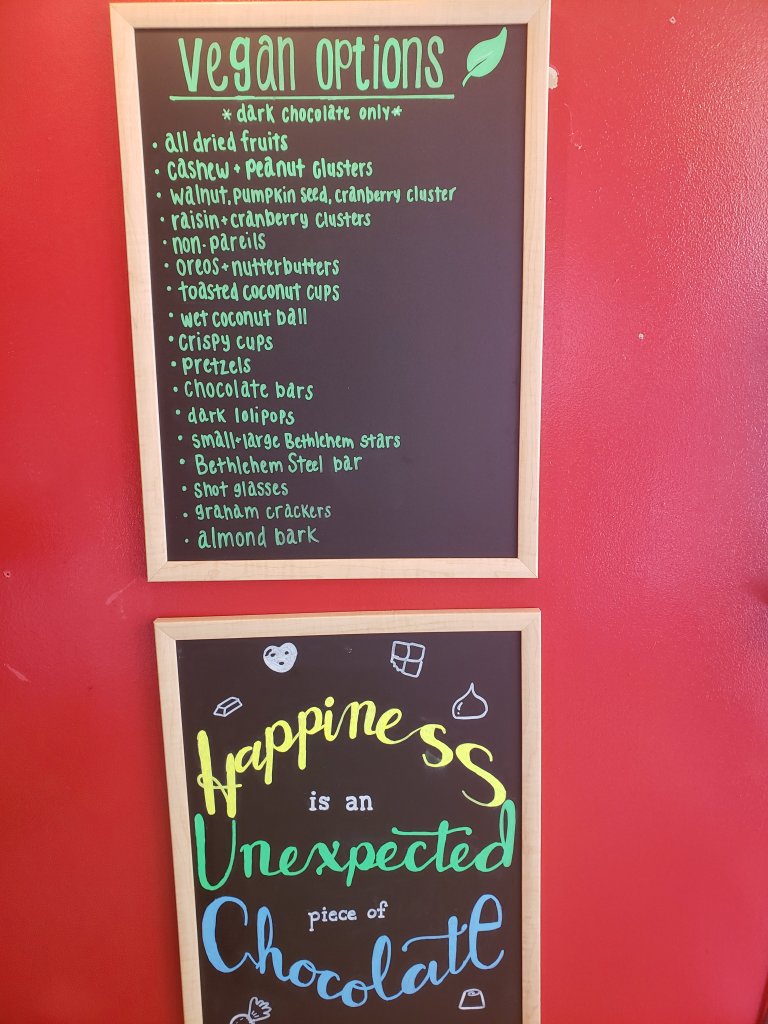 Vegan options
*dark chocolate only*
• all dried fruits
• cashew + peanut clusters
• walnut, pumpkin seed, cranberry cluster
• raisin + cranberry clusters
• non-pareils
• oreos + nutterbutters
• toasted coconut cups
• wet coconut ball
• crispy cups
• pretzels
• chocolate bars
• dark lolipops
• small + large Bethlehem stars
• Bethlehem Steel bar
• shot glasses
• graham crackers
• almond bark
Happiness
is an
Unexpected
piece of
Chocolate